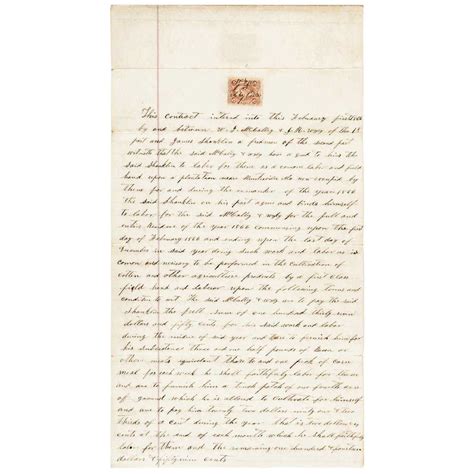 This contract intered into this February first 1866
by and between W. J. McCulley & J. R. Wyly of the 1st
part and James Shanklin a freedman of the second part
witness that the said McCulley & Wyly have agreed to hire the
said Shanklin to labor for them as a common labor and field
hand upon a plantation near Huntsville Ala now occupied by
them for and during the remainder of the year 1866
The said Shanklin on his part agrees and binds himself
to labor for the said McCulley & Wyly for the full and
entire residue of the year 1866 commencing upon the first
day of February 1866 and ending upon the last day of
December in said year doing such work and labor as is
common and necessary to be performed in the Cultivation of
cotton and other agriculture products by a first class
field hand and laborer upon the following terms and
condition to wit. The said McCulley & Wyly are to pay the said
Shanklin the full sum of one hundred thirty seven
dollars and fifty cents for his said work and labor
during the residue of said year and are to furnish him for
his subsistence three and one half pounds of Bacon or
other meats equivalent thereto and one peck of Corn
meal for each week he shall faithfully labor for them
and are to furnish him a truck patch of one fourth acre
of ground which he is allowed to Cultivate for himself
and are to pay him twenty two dollars ninty one & two
thirds of a cent during the year that is two dollars
cents at the end of each month which he shall faithfully
labor for them and the remaining one hundred & fourteen
dollars & fifty nine cents